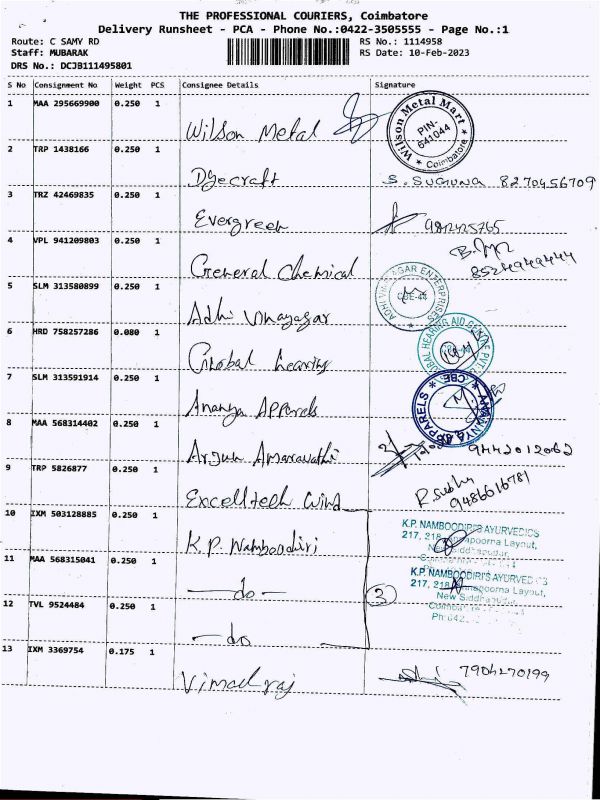 THE PROFESSIONAL COURIERS, Coimbatore
Delivery Runsheet - PCA - Phone No.:0422-3505555 - Page No.:1
Route: C SAMY RD
RS No.: 1114958
Staff: MUBARAK
RS Date: 10-Feb-2023
DRS No.: DCJB111495801
S No Consignment No Weight PCS Consignee Details Signature
1 MAA 295669900 0.250 1 Wilson Metal
Wilson Metal Mart PIN-641044 Coimbatore
2 TRP 1438166 0.250 1 Dyecraft S. SUGUNA 8270456709
3 TRZ 42469835 0.250 1 Evergreen
4 VPL 941209803 0.250 1 General Chemical 8524949444
5 SLM 313580899 0.250 1 Adhi Vinayagar
ADHI VINAYAGAR ENTERPRISES CBE-44
6 HRD 758257286 0.080 1 Global hearing
7 SLM 313591914 0.250 1 Ananya Apparels
ANANYA APPARELS CBE
8 MAA 568314402 0.250 1 Arjun Amaravathi 9442012062
9 TRP 5826877 0.250 1 Excelltech wind 9486616781
10 IXM 503128885 0.250 1 K.P. Namboodiri
K.P. NAMBOODIRI'S AYURVEDICS
217, 218, Annapoorna Layout,
11 MAA 568315041 0.250 1 —do— 3
K.P. NAMBOODIRI'S AYURVEDICS
217, 218 Annapoorna Layout,
New Siddhapudur,
12 TVL 9524484 0.250 1 —do
13 IXM 3369754 0.175 1 Vimalraj 7904270199